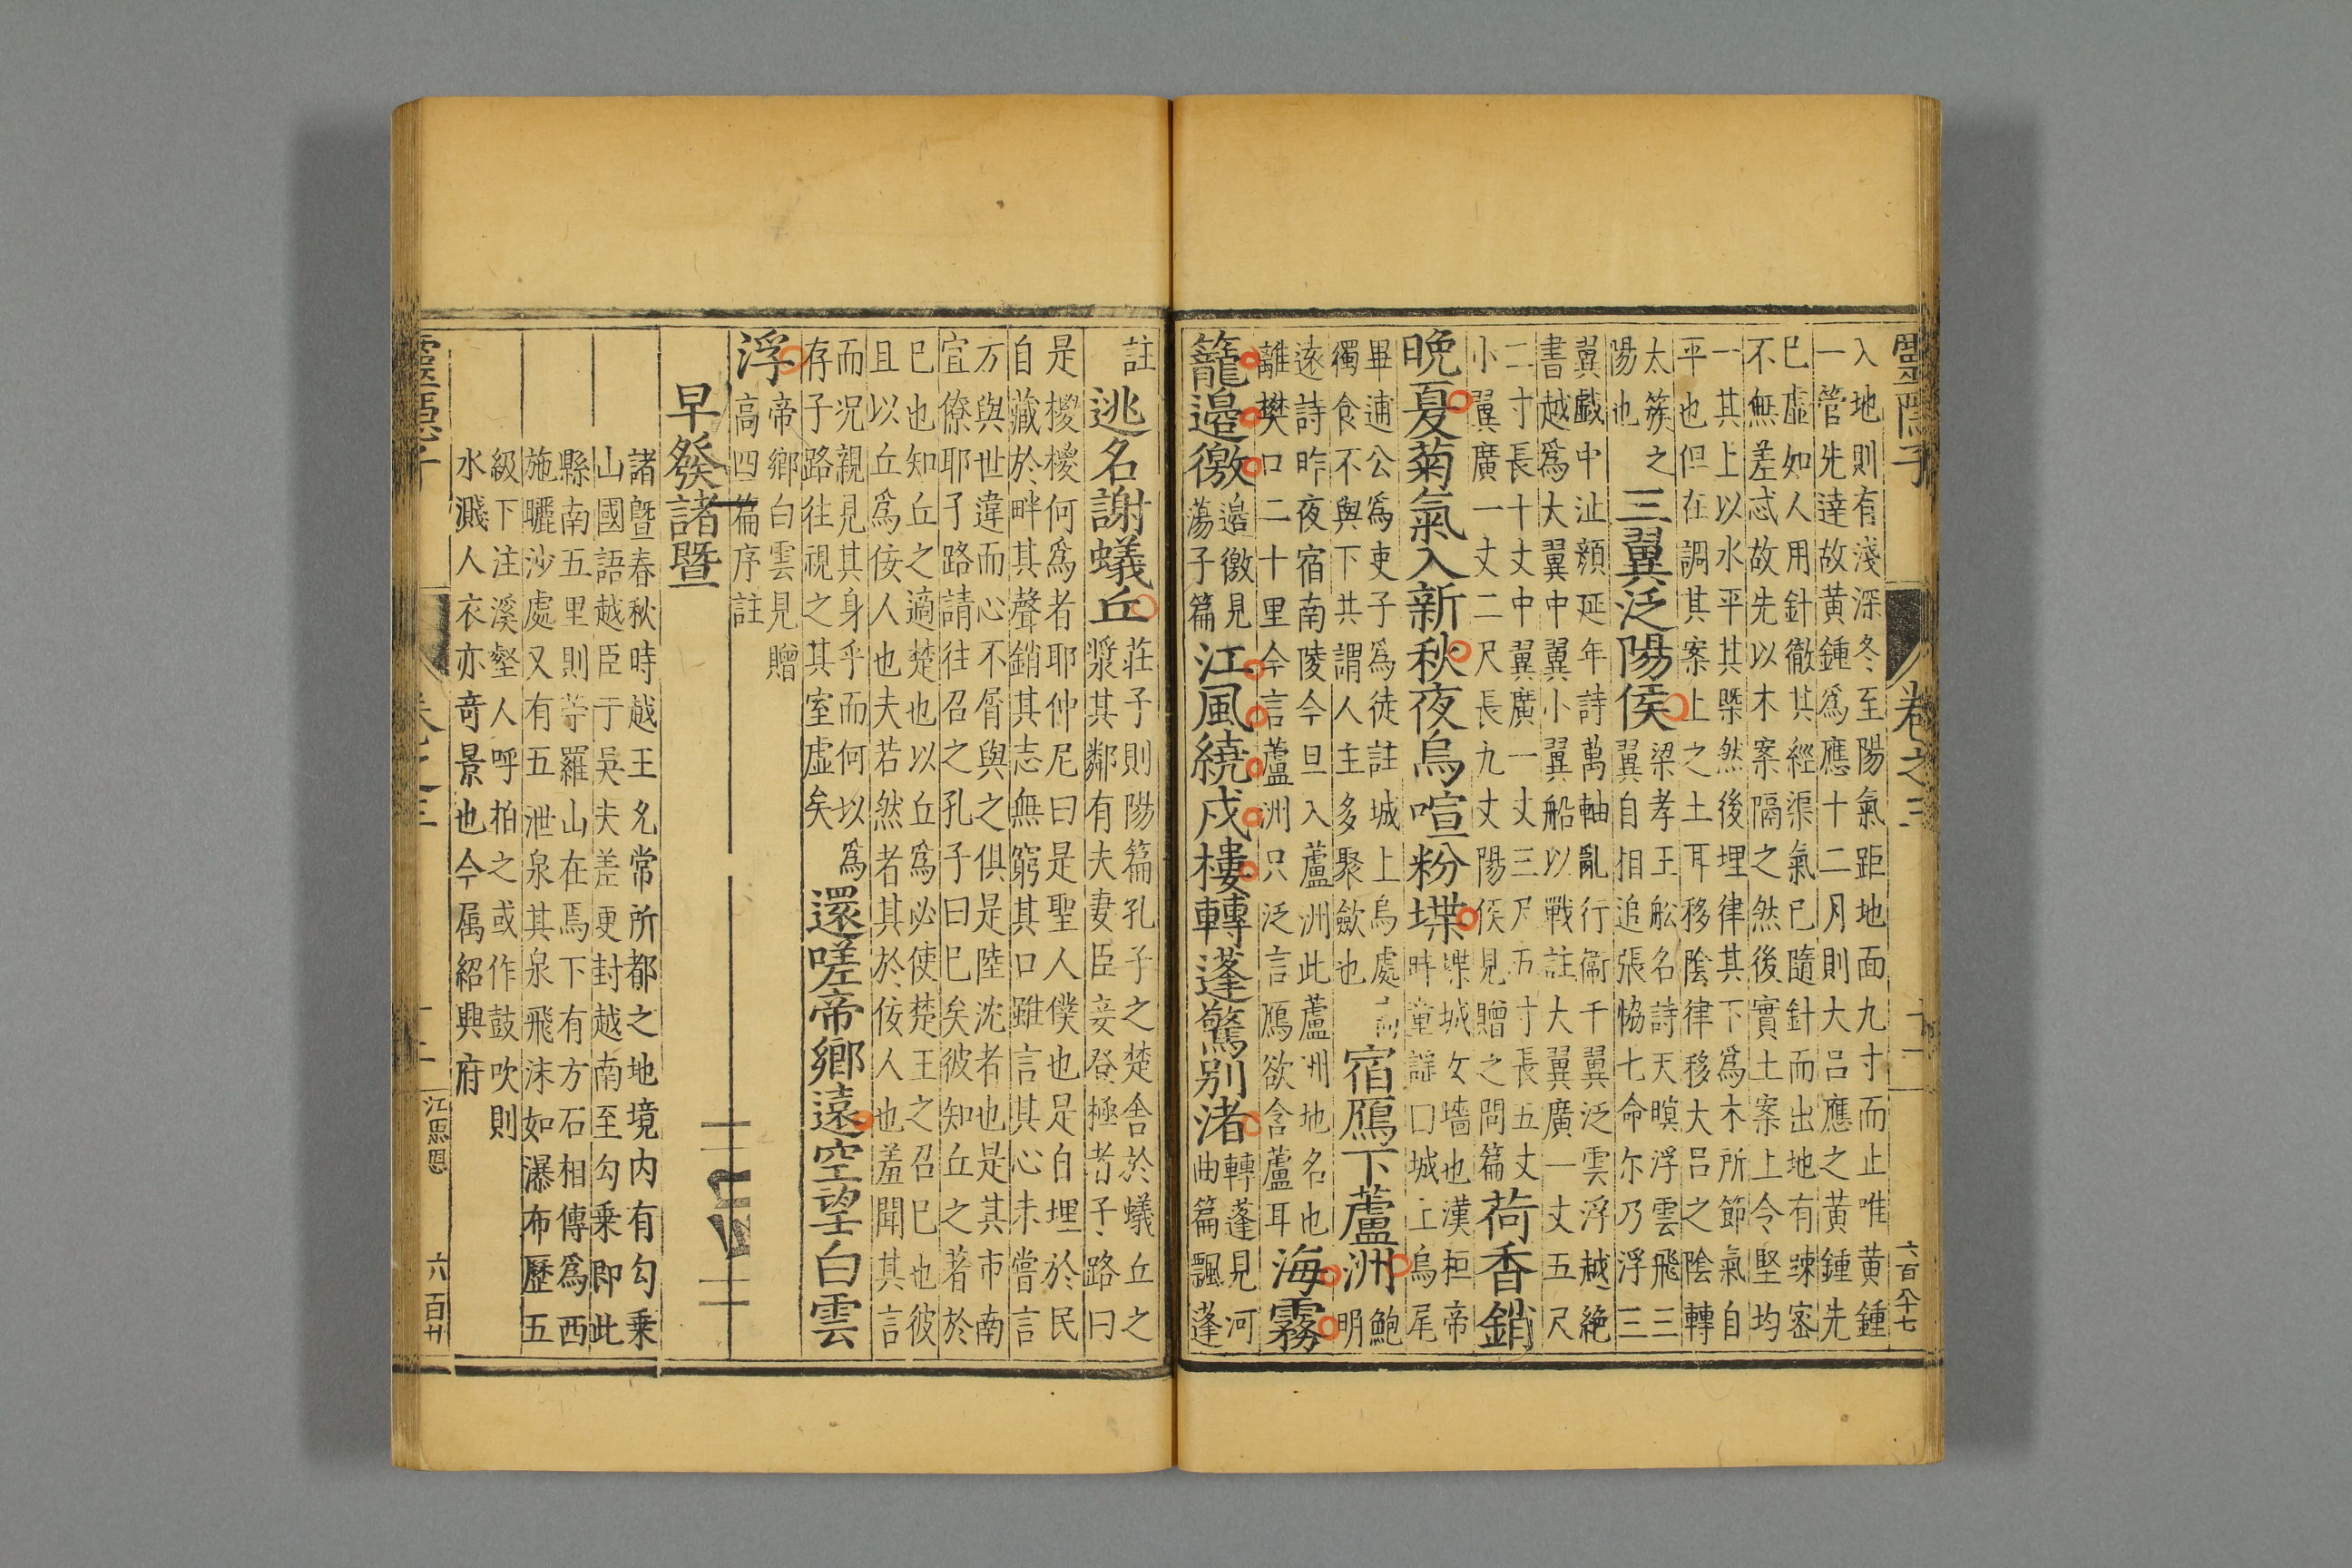 靈隱子
卷之三
十一
六百八十七
入地則有淺深冬至陽氣距地面九寸而止唯黃鍾
一管先達故黃鍾爲應十二月則大呂應之黃鍾先
巳虛如人用針徹其經渠氣巳隨針而出地有踈宻
不無差忒故先以木案隔之然後實土案上令堅均
一其上以水平其槩然後埋律其下爲木所節氣自
平也但在調其案上之土耳移陰律移大呂之陰轉
太簇之
陽也
三翼泛陽侯
梁孝王舩名詩天暝浮雲飛三
翼自相追張恊七命尓乃浮三
翼戱中沚顔延年詩萬軸亂行衞千翼泛雲浮越絶
書越爲大翼中翼小翼船以戰註大翼廣一丈五尺
二寸長十丈中翼廣一丈三尺五寸長五丈
小翼廣一丈二尺長九丈陽侯見贈之問篇
荷香銷
晚夏菊氣入新秋夜烏喧粉堞
堞城女墻也漢桓帝
時童謡曰城上烏尾
畢逋公爲吏子爲徒註城上烏處
獨食不與下共謂人主多聚歛也
宿鴈下蘆洲
鮑
明
逺詩昨夜宿南陵今旦入蘆洲此蘆洲地名也
離樊口二十里今言蘆洲只泛言鴈欲含蘆耳
海霧
籠邉徼
邉徼見
蕩子篇
江風繞戍樓轉蓬驚别渚
轉蓬見河
曲篇飄蓬
註
逃名謝蟻丘
莊子則陽篇孔子之楚舍於蟻丘之
漿其鄰有夫妻臣妾登極者子路曰
是稷稷何爲者耶仲尼曰是聖人僕也是自埋於民
自藏於畔其聲銷其志無窮其口雖言其心未嘗言
方與世違而心不屑與之俱是陸沈者也是其市南
宜僚耶子路請往召之孔子曰巳矣彼知丘之著於
巳也知丘之適楚也以丘爲必使楚王之召巳也彼
且以丘爲佞人也夫若然者其於佞人也羞聞其言
而况親見其身乎而何以爲
存子路往視之其室虛矣
還嗟帝鄉遠空望白雲
浮
帝鄉白雲見贈
高四篇序註
早發諸暨
諸暨春秋時越王允常所都之地境内有勾乗
山國語越臣于吳夫差更封越南至勾乗即此
縣南五里則苧羅山在焉下有方石相傳爲西
施曬沙處又有五泄泉其泉飛沫如瀑布歷五
級下注溪壑人呼柏之或作鼓吹則
水濺人衣亦竒景也今属紹興府
靈隱子
卷之三
十二
江思恩
六百廿